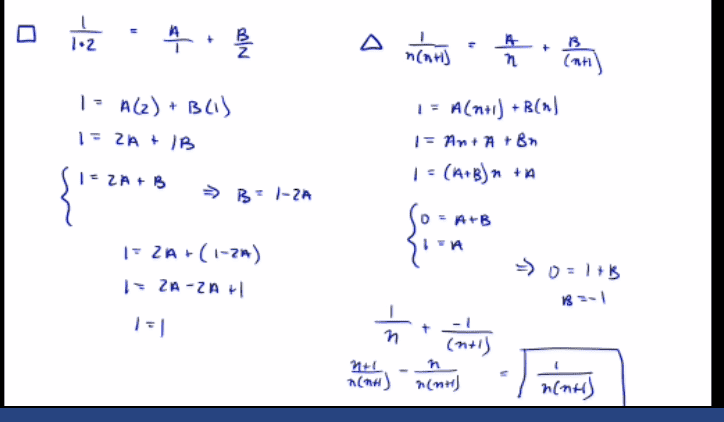 □ 1/(1•2) = A/1 + B/2
1 = A(2) + B(1)
1 = 2A + 1B
{ 1 = 2A + B ⇒ B = 1-2A
1 = 2A + (1-2A)
1 = 2A - 2A + 1
1 = 1
△ 1/(n(n+1)) = A/n + B/(n+1)
1 = A(n+1) + B(n)
1 = An + A + Bn
1 = (A+B)n + A
{ 0 = A+B
1 = A
⇒ 0 = 1 + B
B = -1
1/n + -1/(n+1)
(n+1)/(n(n+1)) - n/(n(n+1)) = 1/(n(n+1))